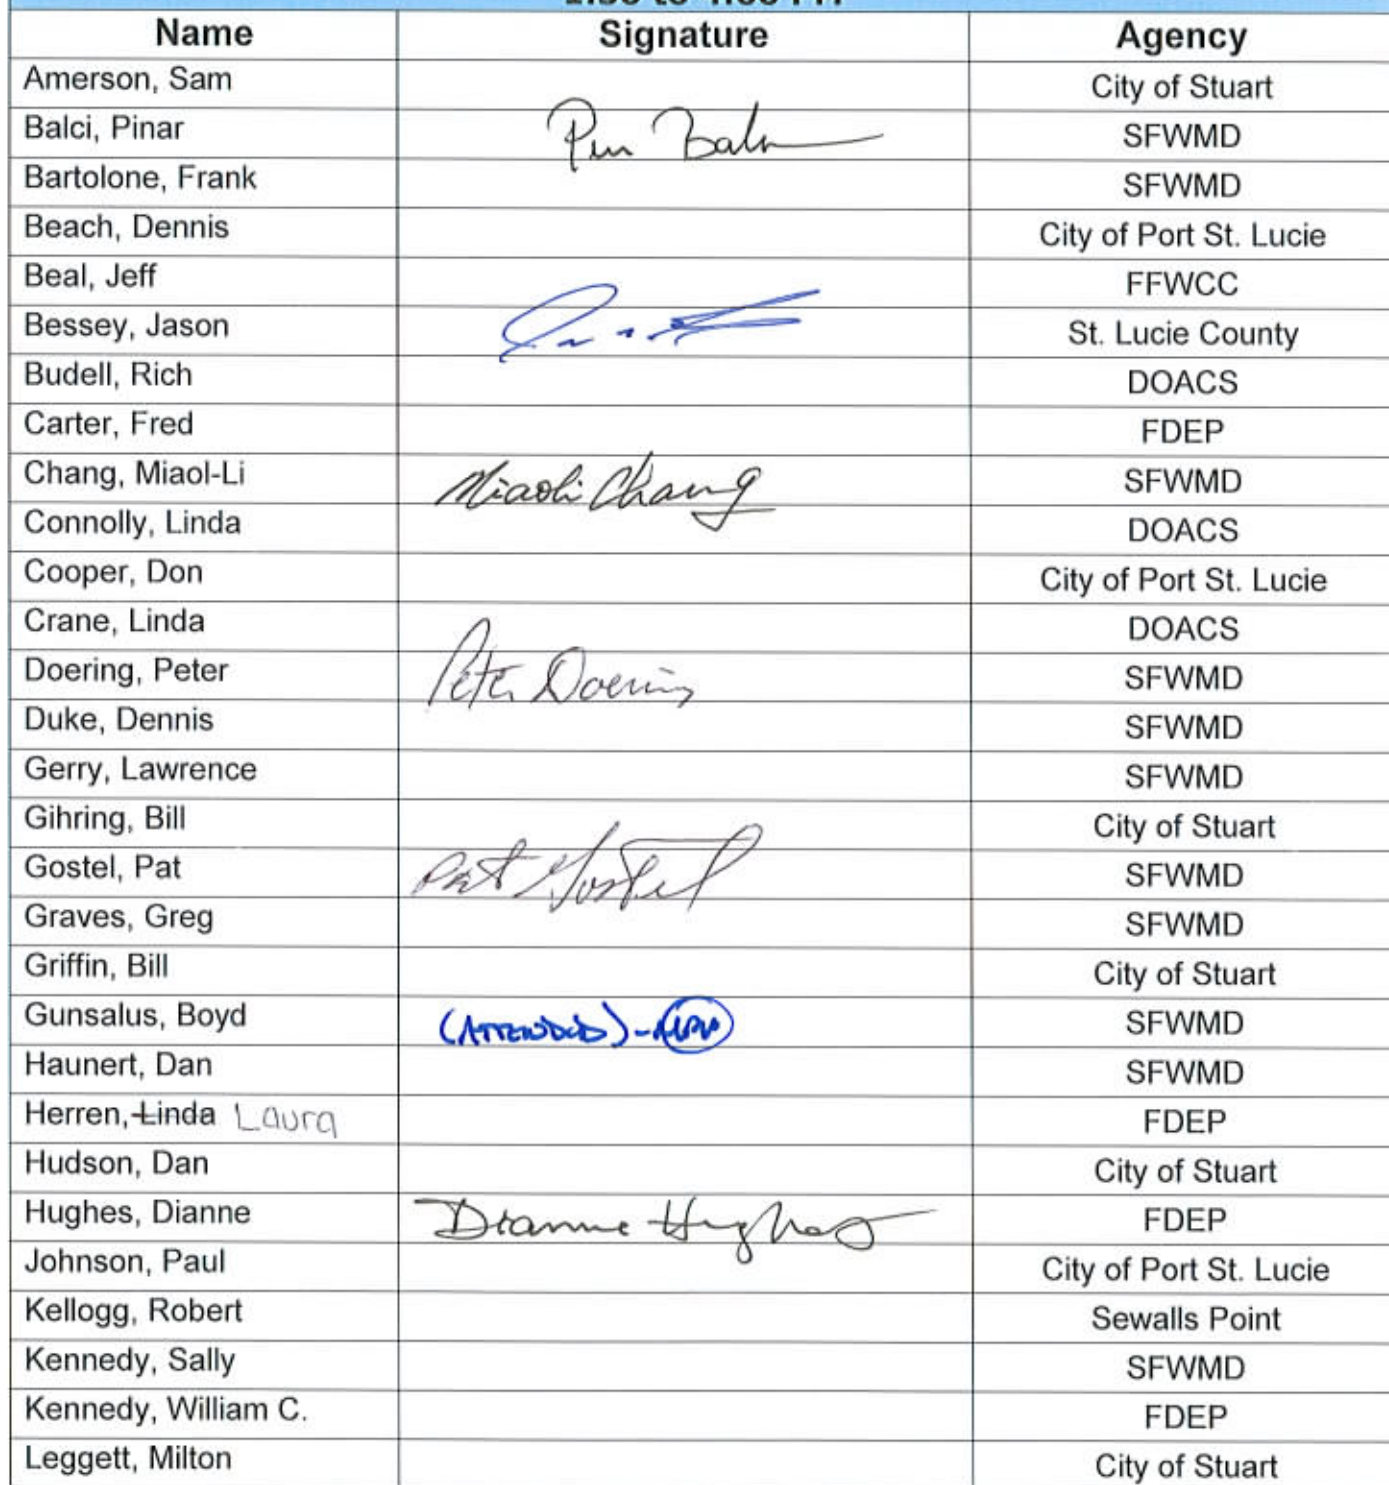 Name Signature Agency
Amerson, Sam City of Stuart
Balci, Pinar SFWMD
Bartolone, Frank SFWMD
Beach, Dennis City of Port St. Lucie
Beal, Jeff FFWCC
Bessey, Jason St. Lucie County
Budell, Rich DOACS
Carter, Fred FDEP
Chang, Miaol-Li Miaoli Chang SFWMD
Connolly, Linda DOACS
Cooper, Don City of Port St. Lucie
Crane, Linda DOACS
Doering, Peter Peter Doering SFWMD
Duke, Dennis SFWMD
Gerry, Lawrence SFWMD
Gihring, Bill City of Stuart
Gostel, Pat Pat Gostel SFWMD
Graves, Greg SFWMD
Griffin, Bill City of Stuart
Gunsalus, Boyd (ATTENDED) SFWMD
Haunert, Dan SFWMD
Herren, Linda Laura FDEP
Hudson, Dan City of Stuart
Hughes, Dianne Dianne Hughes FDEP
Johnson, Paul City of Port St. Lucie
Kellogg, Robert Sewalls Point
Kennedy, Sally SFWMD
Kennedy, William C. FDEP
Leggett, Milton City of Stuart